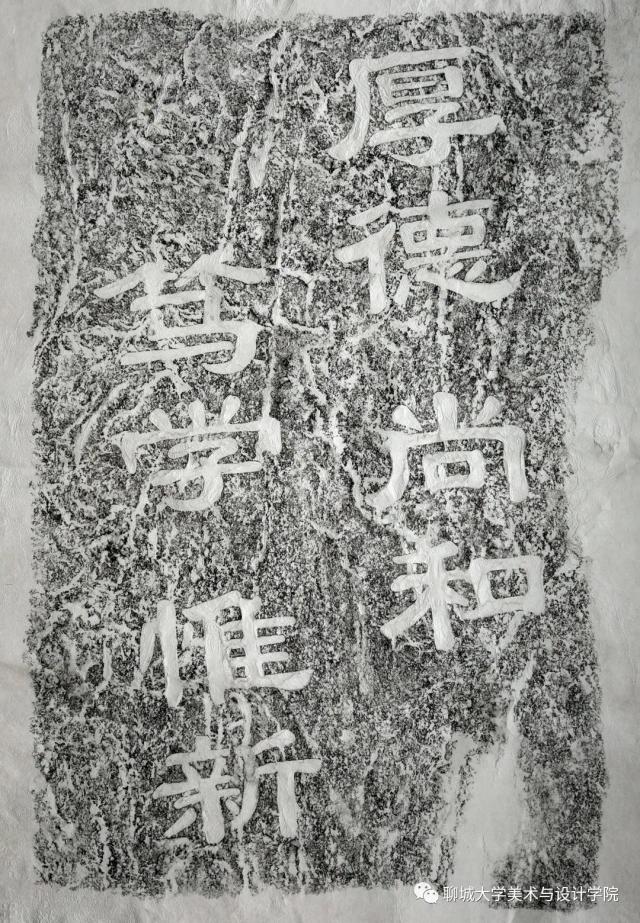 厚德 尚和
笃学 惟新
聊城大学美术与设计学院